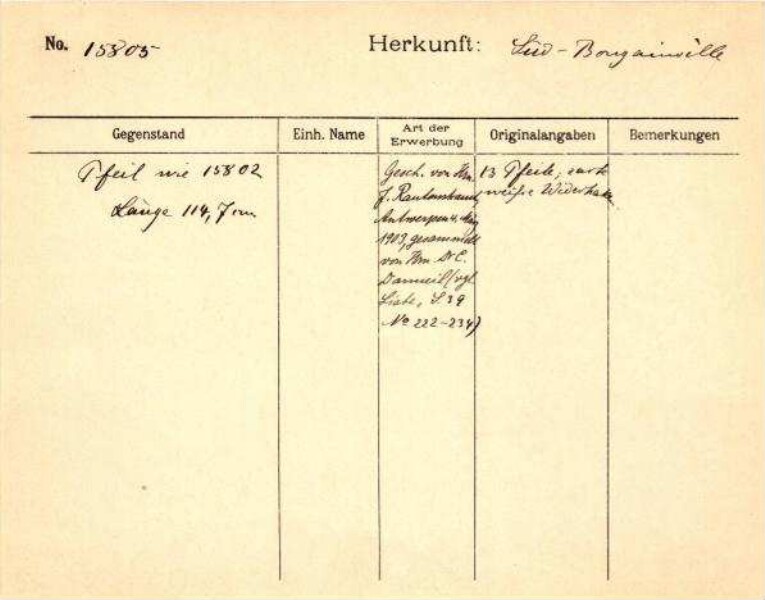 No. 15805 Herkunft: Süd-Bougainville
Gegenstand Einh. Name Art der Erwerbung Originalangaben Bemerkungen
Pfeil wie 15802
Länge 114,7 cm
Gesch. von Hrn
J. Rautenstrauch,
Antwerpen
1909, gesammelt
von Hrn Dr C.
Danneil (vgl
Liste, S. 39
No 222-234)
13 Pfeile,
weiße Widerhaken